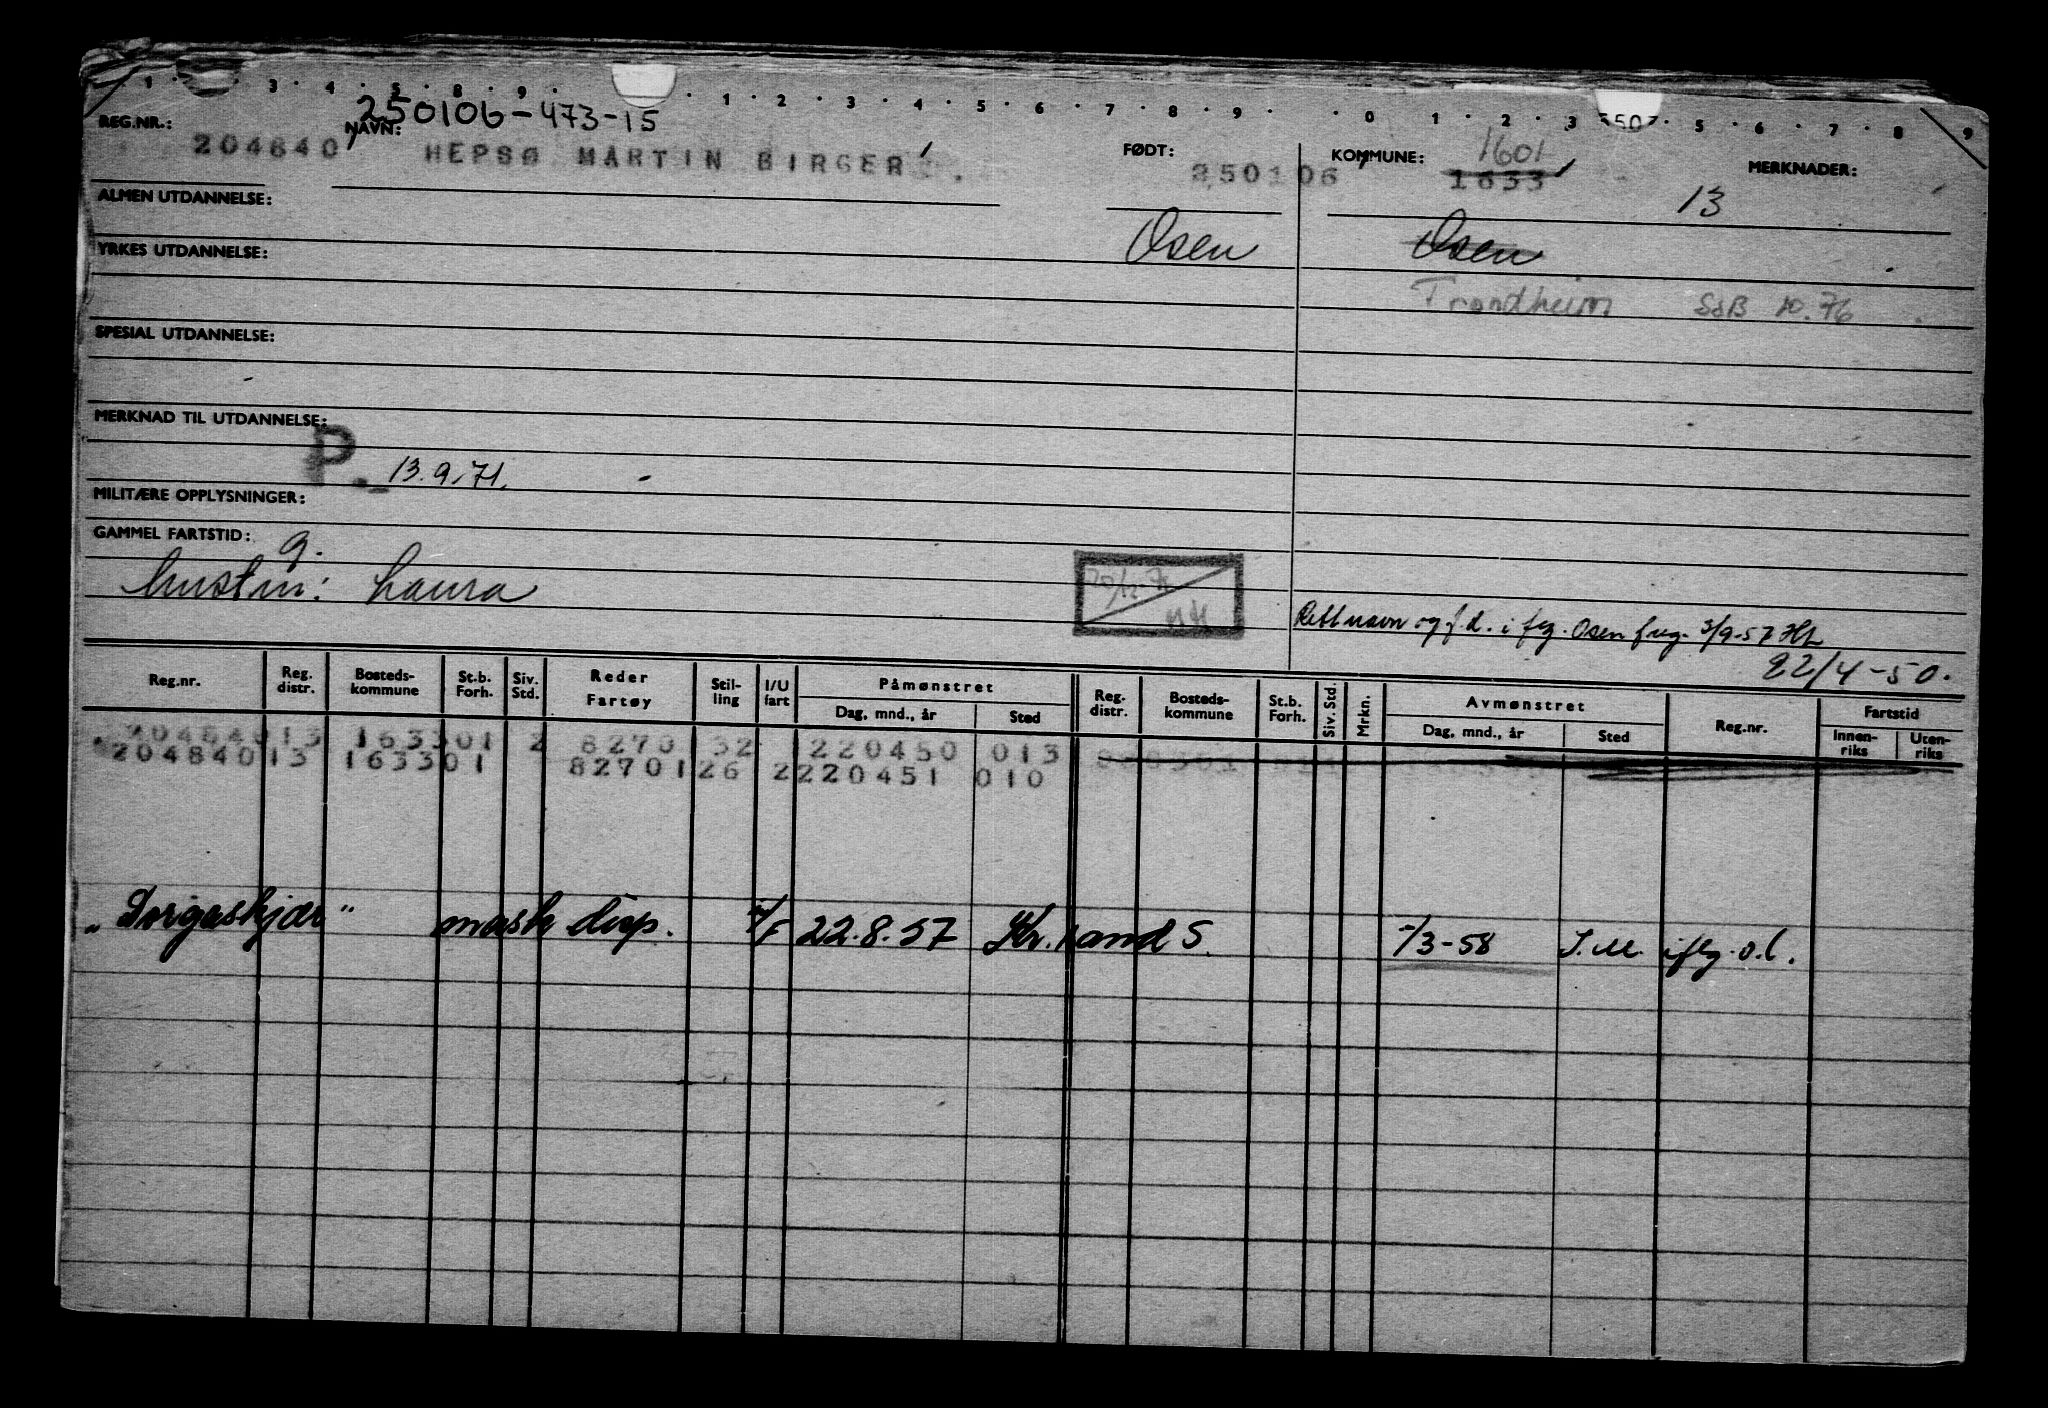 1 3 4 5 8 9 1 2 3 4 5 6 7 8 9 0 1 2 3 5 6 7 8 9
250106-473-15
REG.NR.: 204840 NAVN: HEPSØ MARTIN BIRGER FØDT: 250106 KOMMUNE: 1601 MERKNADER:
1633
13
ALMEN UTDANNELSE:
Osen Osen
YRKES UTDANNELSE:
Trondheim SSB 10.76
SPESIAL UTDANNELSE:
MERKNAD TIL UTDANNELSE:
P. 13.9.71.
MILITÆRE OPPLYSNINGER:
GAMMEL FARTSTID:
g.
hustru: Laura
Rett navn og f.d. i flg. Osen freg. 3/9-57 HL
22/4-50.
Reg.nr. Reg. distr. Bosteds-kommune St.b. Forh. Siv. Std. Reder Fartøy Stil-ling I/U fart Påmønstret Dag, mnd., år Sted Reg. distr. Bosteds-kommune St.b. Forh. Siv. Std. Mrkn. Avmønstret Dag, mnd., år Sted Reg.nr. Fartstid Innen-riks Uten-riks
204840 13 1633 01 2 8270 32 220450 013
204840 13 1633 01 82701 26 2 220451 010
22.8.57 Kr.sand S. -/3-58 S.M. iflg. o.l.